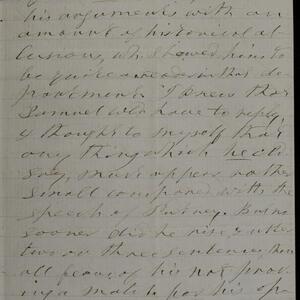 his arguments with an
amount of historical al-
lusions, wh showed him to
be quite a reader in that de-
partment. I knew that
Samuel wld have to reply
& thought to myself that
any thing which he cld
say, must appear rather
small compared with the
speech of Putney. But no
sooner did he rise & utter
two or three sentences, than
all fears of his not prov-
ing a match for his op-